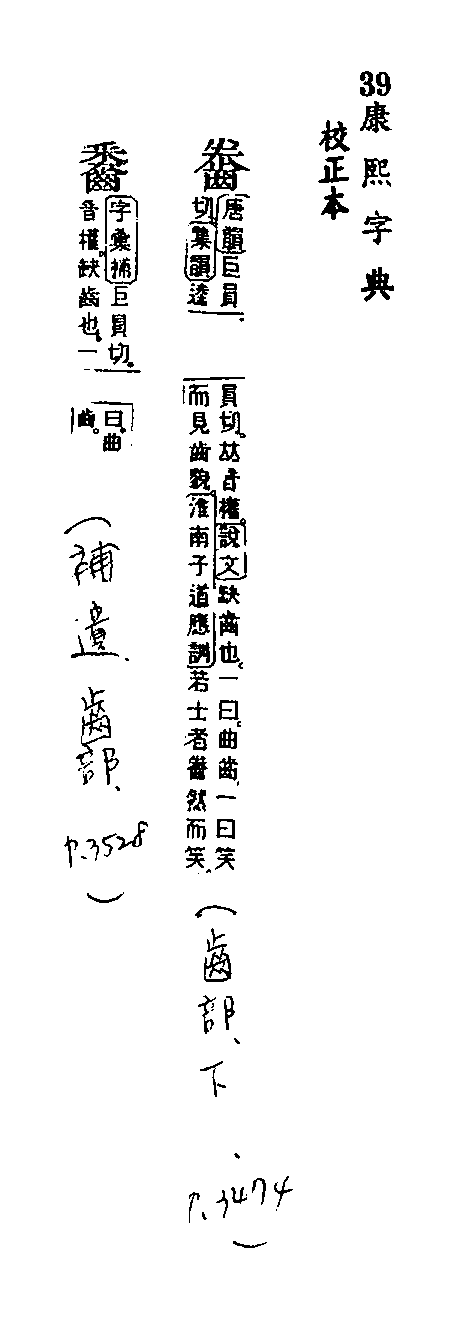 39康熙字典
校正本
齤
唐韻巨員
切。集韻逵
員切。𠀤音權。說文缺齒也。一曰。曲齒、一曰笑
而見齒貌。淮南子道應訓若士者齤然而笑、
(齒部、下、p.3474)
字彙補巨員切。
音權。缺齒也。一
曰。曲
齒。
(補遺、齒部、p.3528)